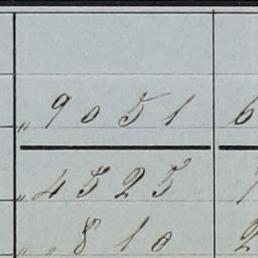 „ 9051 6
„ 4525
„ „ 810 2